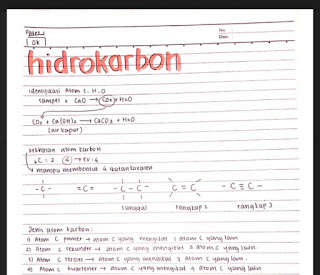 No.
Date
OK
hidrokarbon
identifikasi Atom C, H, O
sampel + CuO → CO₂ + H₂O
CO₂ + Ca(OH)₂ → CaCO₃ + H₂O
(air kapur)
kekhasan atom karbon
↳ C : 2 4 → ev : 4
↳ mampu membentuk 4 ikatan kovalen
-C- =C= -C-C- C=C -C≡C-
tunggal rangkap 2 rangkap 3
Jenis atom karbon :
1) Atom C primer → atom C yang mengikat 1 atom C yang lain
2) Atom C sekunder → atom C yang mengikat 2 atom C yang lain.
3) Atom C tersier → atom C yang mengikat 3 Atom C yang lain.
4) Atom C kuartener → atom C yang mengikat 4 atom C yang lain